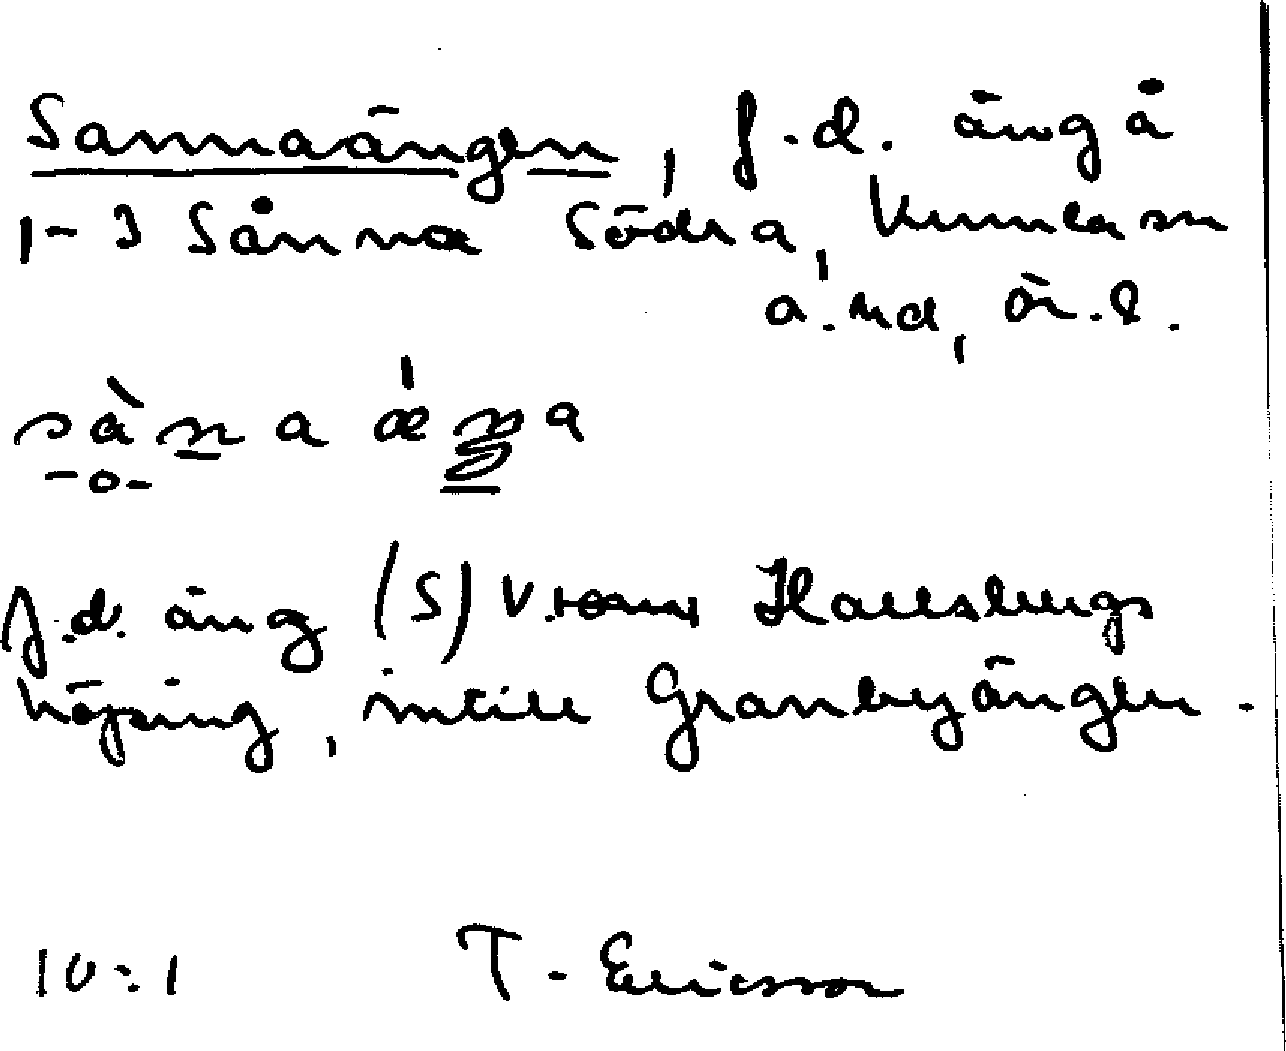 Sannaängen, f.d. äng å
1-3 Sånna Södra, Kumla sn
a. hd, Ör. l.
sàna ǽŋa
f.d. äng (S) V. Hallsbergs
köping, intill Granbyängen.
10:1 T. Ericsson